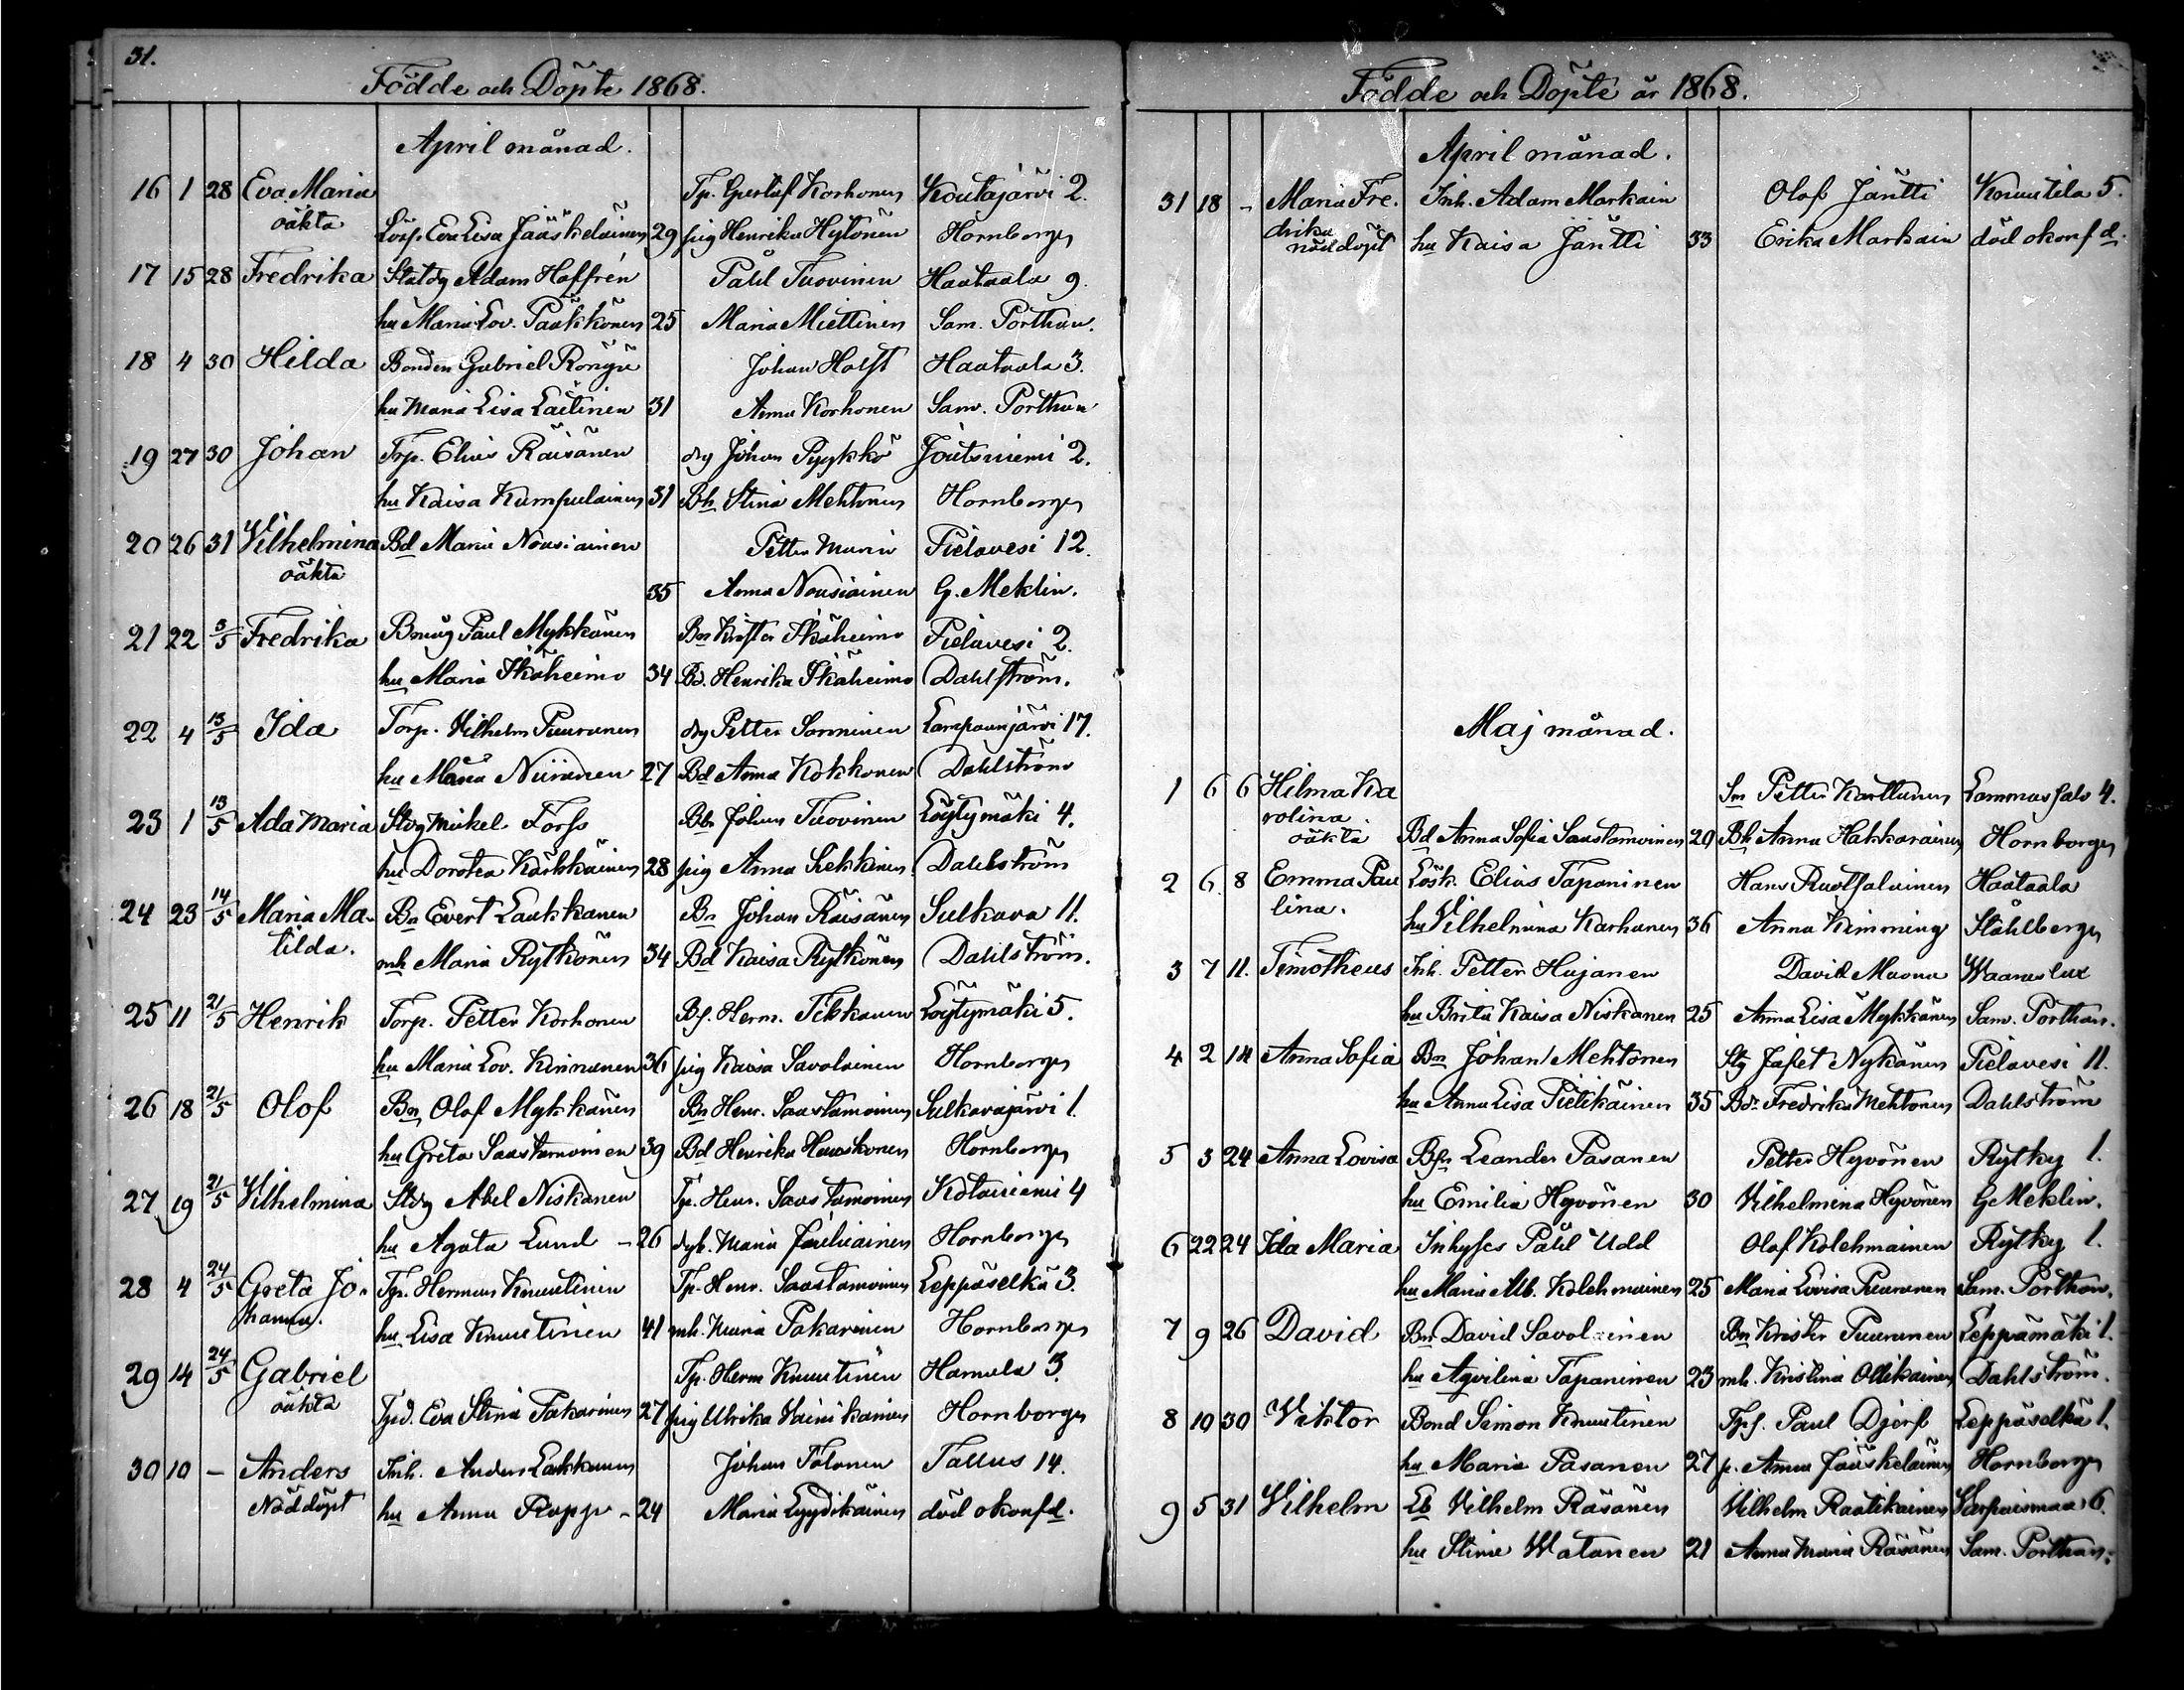 31.
Födde och Döpte 1868.
April månad.
16 1 28 Eva Maria Tp. Gustaf Korhonen Koutajärvi 2.
oäkta Lösp. Eva Lisa Jääskeläinen 29 pig Henrika Hytönen Hornborg
17 15 28 Fredrika Statdg Adam Hoffrén Påhl Tuovinen Haatala 9.
hu Maria Lov. Pääkkönen 25 Maria Miettinen Sam. Porthan.
18 4 30 Hilda Bonden Gabriel Johan Holst Haatala 3.
hu Maria Lisa Laitinen 31 Anna Korhonen Sam. Porthan
19 27 30 Johan Trp. Elias Räisänen dg Johan Pyykkö Joutsniemi 2.
hu Kaisa Kumpulainen 31 Bh. Stina Mehtonen Hornborg
20 26 31 Vilhelmina Bd Maria Nousiainen Petter Pielavesi 12.
oäkta 35 Anna Nousiainen G. Meklin.
21 22 3/5 Fredrika Bmåg Paul Mykkänen Bn Krister Ikäheimo Pielavesi 2.
hu Maria Ikäheimo 34 Bd. Henrika Ikäheimo Dahlström.
22 4 13/5 Ida Torp. Vilhelm Puurunen dg Petter Sorminen Lampaanjärvi 17.
hu Maria Niiranen 27 Bd Anna Kokkonen Dahlström
23 1 13/5 Ada Maria Stdg Mikel Forss Bn Johan Tuovinen Löytymäki 4.
hu Dorotea Kärkkäinen 28 pig Anna Dahlström
24 23 14/5 Maria Ma- Bn Evert Laukkanen Bn Johan Räisänen Sulkava 11.
tilda. mh Maria Rytkönen 34 Bd Kaisa Rytkönen Dahlström.
25 11 21/5 Henrik Torp. Petter Korhonen Bf. Herm. Tikkanen Löytymäki 5.
hu Maria Lov. Kinnunen 36 pig Kaisa Savolainen Hornborg
26 18 21/5 Olof Bn Olof Mykkänen Bn Henr. Saastamoinen Sulkavajärvi 1.
hu Greta Saastamoinen 39 Bd Henrika Hornborg
27 19 21/5 Vilhelmina Stdg Abel Niskanen Tp. Henr. Saastamoinen Kotaniemi 4
hu Agata Lund - 26 Maria Hornborg
28 4 24/5 Greta Jo- Tp. Herman Knuutinen Tp. Henr. Saastamoinen Leppäselkä 3.
hanna. hu Lisa Knuutinen 41 mh. Maria Pakarinen Hornborg
29 14 24/5 Gabriel Tp. Herm Knuutinen Hamula 3.
oäkta Tpd. Eva Stina Pakarinen 27 pig Ulrika Vainikainen Hornborg
30 10 – Anders Inh. Anders Laukkanen Johan Tolonen Tallus 14.
Nöddöpt hu Anna Ropp - 24 Maria Lyydikäinen död okonfd.
Födde och Döpte år 1868.
April månad.
31 18 - Maria Fre- Inh. Adam Markain Olof Jäntti Knuutila 5.
drika
nöddöpt hu Kaisa Jäntti 33 Erika Markain död okonfd.
Maj månad.
1 6 6 Hilma Ka Sn Petter Karttunen Lammassalo 4.
rolina
oäkta Bd Anna Sofia Saastamoinen 29 Bh Anna Hakkarainen Hornborg
2 6 8 Emma Pau Lösk. Elias Tapaninen Hans Ruotsalainen Haatala
lina. hu Vilhelmina Korhonen 36 Anna Kimming Ståhlberg
3 7 11. Timotheus Inh. Petter Hujanen David Mauna
hu Brita Kaisa Niskanen 25 Anna Lisa Mykkänen Sam. Porthan.
4 2 14 Anna Sofia Bn Johan Mehtonen Stg Jafet Nykänen Pielavesi 11.
hu Anna Lisa Pietikäinen 35 Bdr Fredrika Mehtonen Dahlström
5 3 24 Anna Lovisa Bfn Leander Pasanen Petter Hyvönen Rytky 1.
hu Emilia Hyvönen 30 Vilhelmina Hyvönen G Meklin.
6 22 24 Ida Maria Inhyses Påhl Udd Olof Kolehmainen Rytky 1.
hu Maria Alb. Kolehmainen 25 Maria Lovisa Puurunen Sam. Porthan.
7 9 26 David Bn David Savolainen Bn Krister Puurunen Leppämäki 1.
hu Aqvilina Tapaninen 23 mh. Kristina Ollikainen Dahlström.
8 10 30 Viktor Bond Simon Knuutinen Tpf. Paul Djerf Leppäselkä 1.
hu Maria Pasanen 27 p. Anna Jääskeläinen Hornborg
9 5 31 Vilhelm Lb Vilhelm Räsänen Vilhelm Raatikainen Varpaismaa 6.
hu Stina Watanen 21 Anna Maria Räsänen Sam. Porthan.